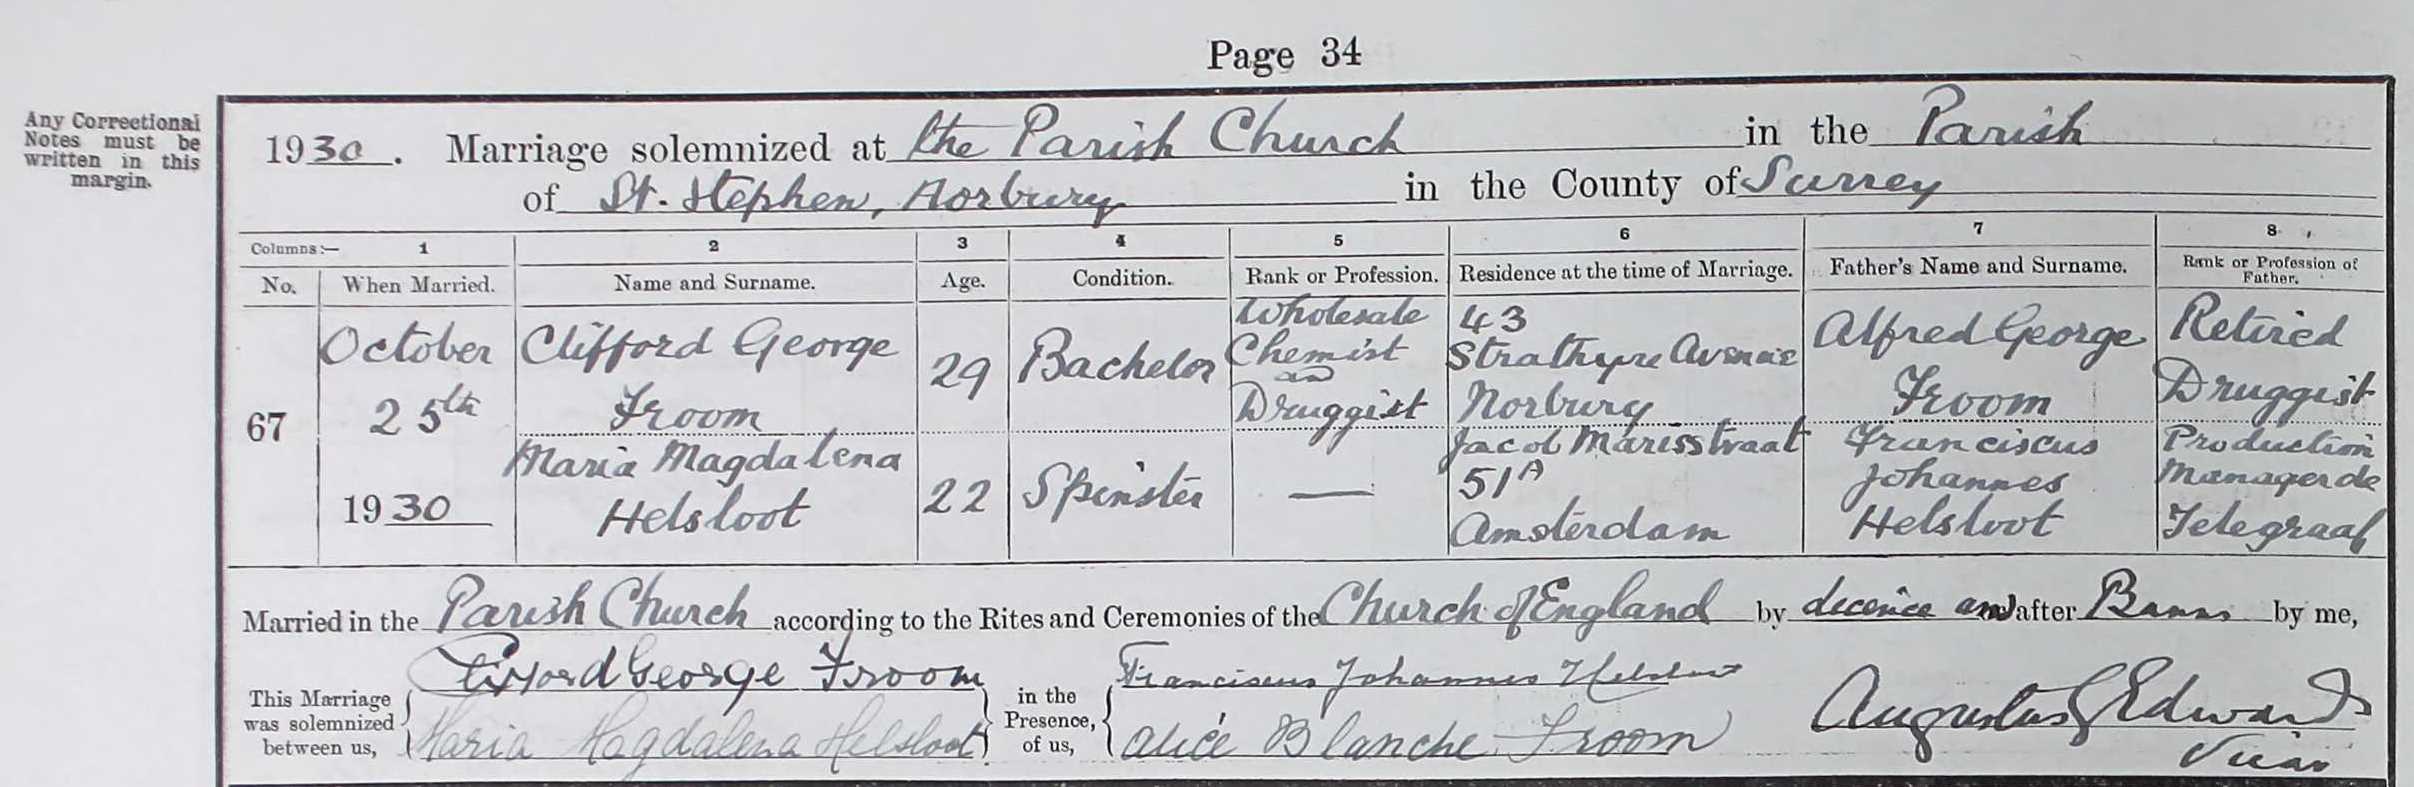 Page 34
Any Correctional
Notes must be
written in this
margin.
1930. Marriage solemnized at the Parish Church in the Parish
of St. Stephen, Norbury in the County of Surrey
Columns:— 1 2 3 4 5 6 7 8
No. When Married. Name and Surname. Age. Condition. Rank or Profession. Residence at the time of Marriage. Father's Name and Surname. Rank or Profession of Father.
67
October
25th
1930
Clifford George
Froom
29
Bachelor
Wholesale
Chemist
and
Druggist
43
Strathyre Avenue
Norbury
Alfred George
Froom
Retired
Druggist
Maria Magdalena
Helsloot
22
Spinster
—
Jacob Marisstraat
51A
Amsterdam
Franciscus
Johannes
Helsloot
Production
Manager de
Telegraaf
Married in the Parish Church according to the Rites and Ceremonies of the Church of England by and after Banns by me,
This Marriage
was solemnized
between us,
Clifford George Froom
Maria Magdalena Helsloot
in the
Presence,
of us,
Franciscus Johannes Helsloot
Alice Blanche Froom
Augustus G Edwards
Vicar